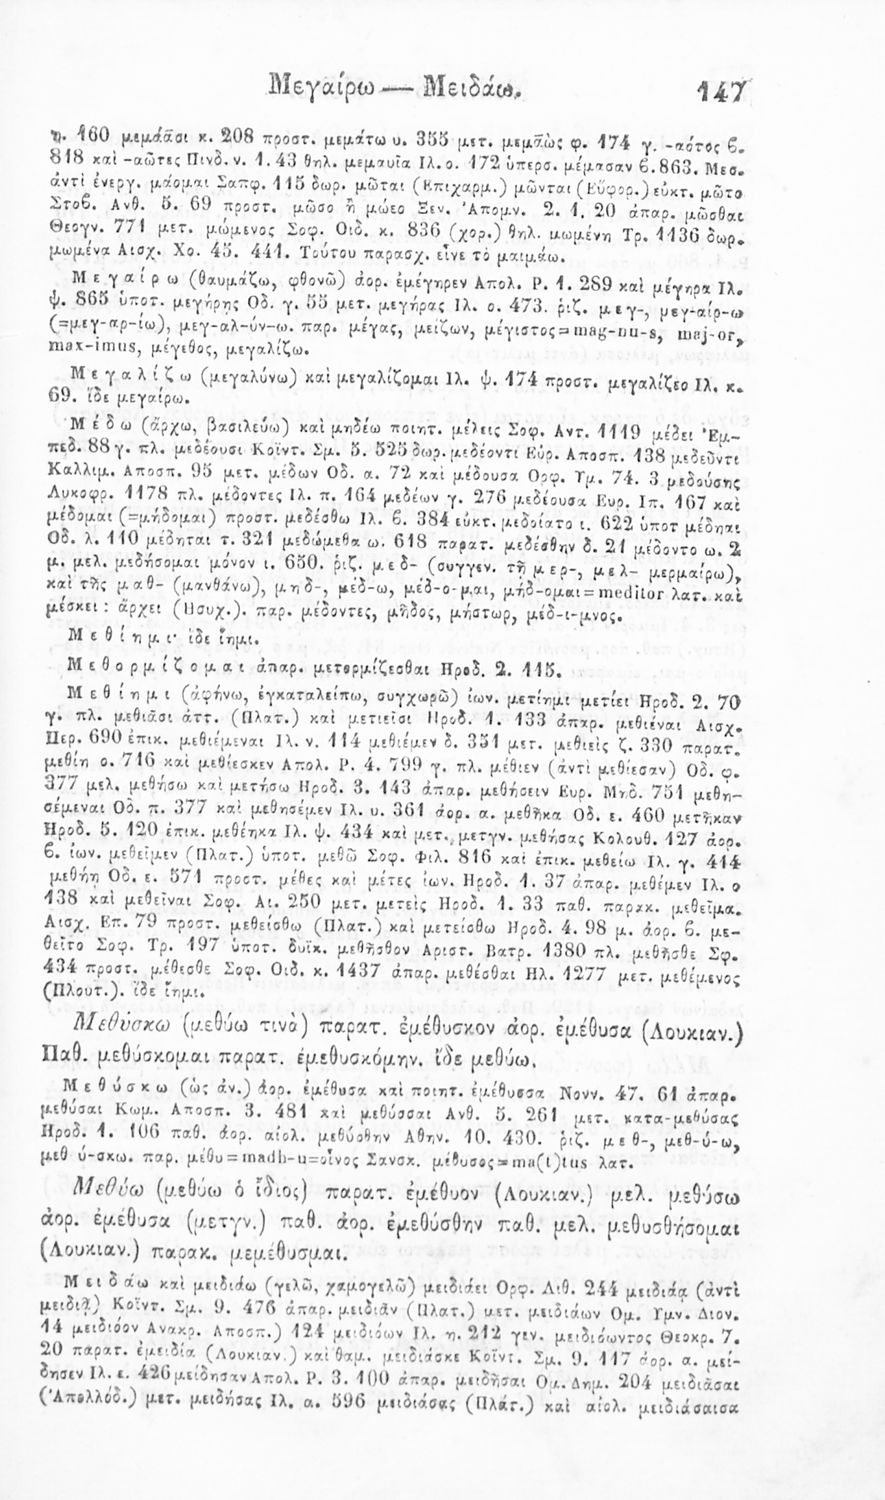 Μεγαίρω — Μειδάω. 147
η. 160 μεμάᾱσι κ. 208 προστ. μεμάτω υ. 355 μετ. μεμᾱὼς φ. 174 γ. -αότος ϐ.
818 καὶ -αῶτες Πινδ. ν. 1. 43 θηλ. μεμαυῖα Ιλ. ο. 172 ὑπερσ. μέμασαν ϐ. 863. Μεσ.
ἀντὶ ἐνεργ. μάομαι Σαπφ. 115 δωρ. μῶται (Επιχαρμ.) μῶνται (Εὐφορ.) εὐκτ. μῷτο
Στοϐ. Ανθ. 5. 69 προστ. μῶσο ἢ μώεο Ξεν. Ἀπομν. 2. 1. 20 ἀπαρ. μῶσθαι
Θεογν. 771 μετ. μώμενος Σοφ. Οιδ. κ. 836 (χορ.) θηλ. μωμένη Τρ. 1136 δωρ.
μωμένα Αισχ. Χο. 45. 441. Τούτου παρασχ. εἶνε τὸ μαιμάω.
Μεγαίρω (θαυμάζω, φθονῶ) ἀορ. ἐμέγηρεν Απολ. Ρ. 1. 289 καὶ μέγηρα Ιλ.
ψ. 865 ὑποτ. μεγήρῃς Οδ. γ. 55 μετ. μεγήρας Ιλ. ο. 473. ῥιζ. μεγ-, μεγ-αίρ-ω
(=μεγ-αρ-ίω), μεγ-αλ-ύν-ω. παρ. μέγας, μείζων, μέγιστος=mag-nu-s, maj-or,
max-imus, μέγεθος, μεγαλίζω.
Μεγαλίζω (μεγαλύνω) καὶ μεγαλίζομαι Ιλ. ψ. 174 προστ. μεγαλίζεο Ιλ. κ.
69. ἴδε μεγαίρω.
Μέδω (ἄρχω, βασιλεύω) καὶ μηδέω ποιητ. μέλεις Σοφ. Αντ. 1119 μέδει Ἐμ-
πεδ. 88 γ. πλ. μεδέουσι Κοίντ. Σμ. 5. 525 δωρ. μεδέοντι Εύρ. Αποσπ. 138 μεδεῦντι
Καλλιμ. Αποσπ. 95 μετ. μέδων Οδ. α. 72 καὶ μέδουσα Ορφ. Υμ. 74. 3 μεδούσης
Λυκοφρ. 1178 πλ. μέδοντες Ιλ. π. 164 μεδέων γ. 276 μεδέουσα Ευρ. Ιπ. 167 καὶ
μέδομαι (=μήδομαι) προστ. μεδέσθω Ιλ. ϐ. 384 εὐκτ. μεδοίατο ι. 622 ὑποτ μέδηαι
Οδ. λ. 110 μέδηται τ. 321 μεδώμεθα ω. 618 παρατ. μεδέσθην δ. 21 μέδοντο ω. 2
μ. μελ. μεδήσομαι μόνον ι. 650. ῥιζ. μεδ- (συγγεν. τῇ μερ-, μελ- μερμαίρω),
καὶ τῆς μαθ- (μανθάνω), μηδ-, μέδ-ω, μέδ-ο-μαι, μήδ-ομαι=meditor λατ. καὶ
μέσκει : ἄρχει (Ησυχ.). παρ. μέδοντες, μῆδος, μήστωρ, μέδ-ι-μνος.
Μεθίημι· ἴδε ἵημι.
Μεθορμίζομαι ἀπαρ. μετορμίζεσθαι Ηροδ. 2. 115.
Μεθίημι (ἀφήνω, ἐγκαταλείπω, συγχωρῶ) ἰων. μετίημι μετίει Ηροδ. 2. 70
γ. πλ. μεθιᾶσι ἀττ. (Πλατ.) καὶ μετιεῖσι Ηροδ. 1. 133 ἀπαρ. μεθιέναι Αισχ.
Περ. 690 ἐπικ. μεθιέμεναι Ιλ. ν. 114 μεθιέμεν δ. 351 μετ. μεθιεὶς ζ. 330 παρατ.
μεθίη ο. 716 καὶ μεθίεσκεν Απολ. Ρ. 4. 799 γ. πλ. μέθιεν (ἀντὶ μεθίεσαν) Οδ. φ.
377 μελ. μεθήσω καὶ μετήσω Ηροδ. 3. 143 ἀπαρ. μεθήσειν Ευρ. Μηδ. 751 μεθη-
σέμεναι Οδ. π. 377 καὶ μεθησέμεν Ιλ. υ. 361 ἀορ. α. μεθῆκα Οδ. ε. 460 μετῆκαν
Ηροδ. 5. 120 ἐπικ. μεθέηκα Ιλ. ψ. 434 καὶ μετ. μετγν. μεθήσας Κολουθ. 127 ἀορ.
ϐ. ἰων. μεθεῖμεν (Πλατ.) ὑποτ. μεθῶ Σοφ. Φιλ. 816 καὶ ἐπικ. μεθείω Ιλ. γ. 414
μεθήῃ Οδ. ε. 571 προστ. μέθες καὶ μέτες ἰων. Ηροδ. 1. 37 ἀπαρ. μεθέμεν Ιλ. ο
138 καὶ μεθεῖναι Σοφ. Αι. 250 μετ. μετεὶς Ηροδ. 1. 33 παθ. παρακ. μεθεῖμα.
Αισχ. Επ. 79 προστ. μεθείσθω (Πλατ.) καὶ μετείσθω Ηροδ. 4. 98 μ. ἀορ. ϐ. με-
θεῖτο Σοφ. Τρ. 197 ὑποτ. δυϊκ. μεθῆσθον Αριστ. Βατρ. 1380 πλ. μεθῆσθε Σφ.
434 προστ. μέθεσθε Σοφ. Οιδ. κ. 1437 ἀπαρ. μεθέσθαι Ηλ. 1277 μετ. μεθέμενος
(Πλουτ.). ἴδε ἵημι.
Μεθύσκω (μεθύω τινὰ) παρατ. ἐμέθυσκον ἀορ. ἐμέθυσα (Λουκιαν.)
Παθ. μεθύσκομαι παρατ. ἐμεθυσκόμην. ἴδε μεθύω.
Μεθύσκω (ὡς ἀν.) ἀορ. ἐμέθυσα καὶ ποιητ. ἐμέθυσσα Νονν. 47. 61 ἀπαρ.
μεθύσαι Κωμ. Αποσπ. 3. 481 καὶ μεθύσσαι Ανθ. 5. 261 μετ. κατα-μεθύσας
Ηροδ. 1. 106 παθ. ἀορ. αἰολ. μεθύσθην Αθην. 10. 430. ῥιζ. μεθ-, μεθ-ύ-ω,
μεθ ύ-σκω. παρ. μέθυ=madh-u=οἶνος Σανσκ. μέθυσος=ma(t)tus λατ.
Μεθύω (μεθύω ὁ ἴδιος) παρατ. ἐμέθυον (Λουκιαν.) μελ. μεθύσω
ἀορ. ἐμέθυσα (μετγν.) παθ. ἀορ. ἐμεθύσθην παθ. μελ. μεθυσθήσομαι
(Λουκιαν.) παρακ. μεμέθυσμαι.
Μειδάω καὶ μειδιάω (γελῶ, χαμογελῶ) μειδιάει Ορφ. Λιθ. 244 μειδιάᾳ (ἀντὶ
μειδιᾷ) Κοΐντ. Σμ. 9. 476 ἀπαρ. μειδιᾶν (Πλατ.) μετ. μειδιάων Ομ. Υμν. Διον.
14 μειδιόον Ανακρ. Αποσπ.) 124 μειδιόων Ιλ. η. 212 γεν. μειδιόωντος Θεοκρ. 7.
20 παρατ. ἐμειδία (Λουκιαν.) καὶ θαμ. μειδιάσκε Κοΐντ. Σμ. 9. 117 ἀορ. α. μεί-
δησεν Ιλ. ε. 426 μείδησαν Απολ. Ρ. 3. 100 ἀπαρ. μειδῆσαι Ομ. Δημ. 204 μειδιᾶσαι
(Ἀπολλόδ.) μετ. μειδήσας Ιλ. α. 596 μειδιάσας (Πλάτ.) καὶ αἰολ. μειδιάσαισα